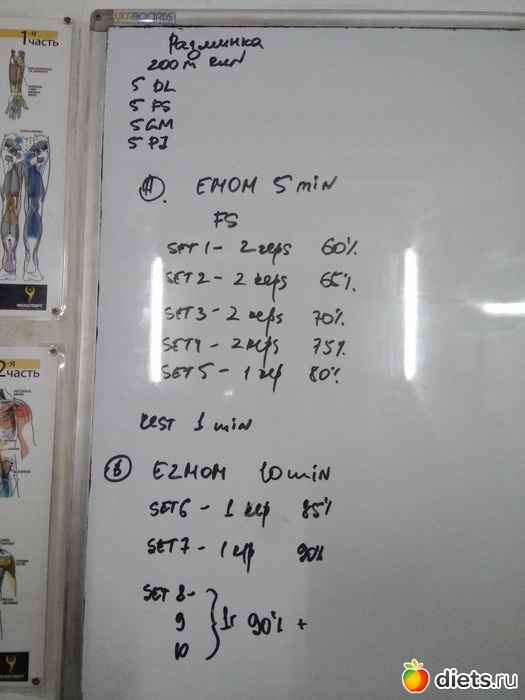 UKRBOARDS
1-я
ЧАСТЬ
2-я
ЧАСТЬ
Разминка
200m run
5 DL
5 FS
5 GM
5 PJ
A. EMOM 5 min
FS
SET 1 - 2 reps 60%
SET 2 - 2 reps 65%
SET 3 - 2 reps 70%
SET 4 - 2 reps 75%
SET 5 - 1 rep 80%
Rest 1 min
B E2MOM 10 min
SET 6 - 1 rep 85%
SET 7 - 1 rep 90%
SET 8 -
9 } 1r 90% +
10
diets.ru